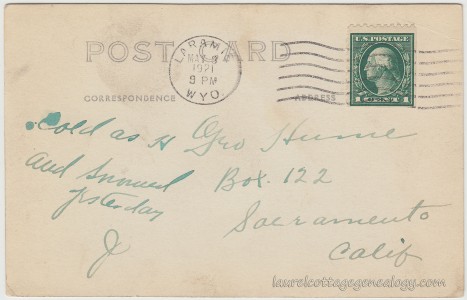 POST CARD
LARAMIE
MAY 3
9 PM
1921
WYO.
U.S. POSTAGE
CORRESPONDENCE
ADDRESS
Cold as H
and snowed
yesterday
J
Geo Hume
Box 122
Sacramento
Calif
laurelcottagegenealogy.com